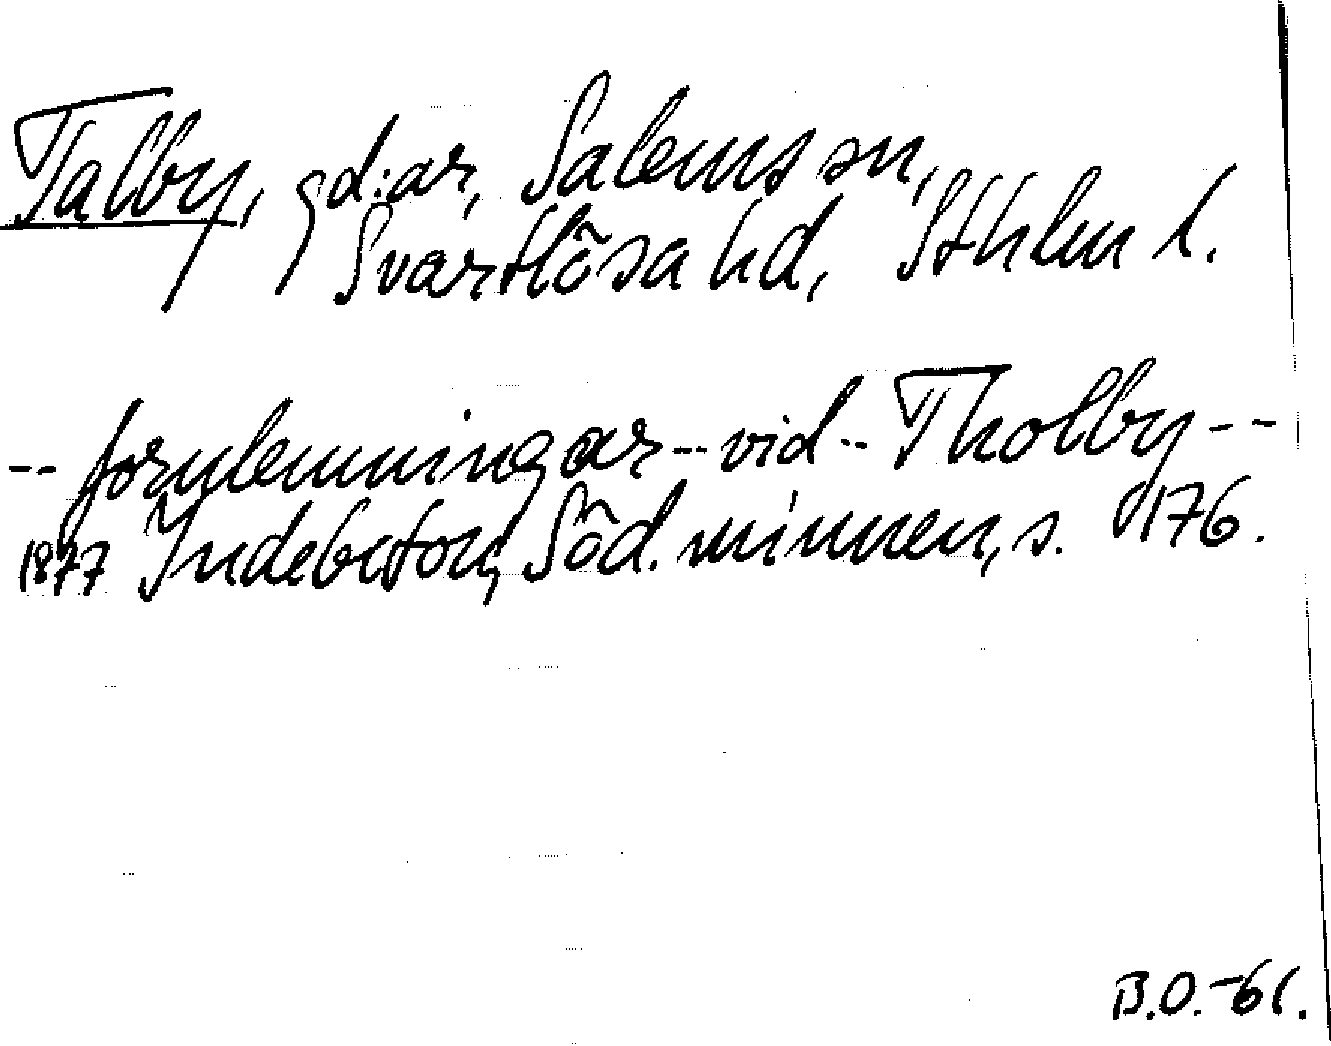 Talby, gd:ar, Salems sn,
Svartlösa hd, Sthlm l.
-- fornlemningar -- vid -- Tholby --
1877 Indebetou, Söd. minnen, s. 176.
B.O.-61.